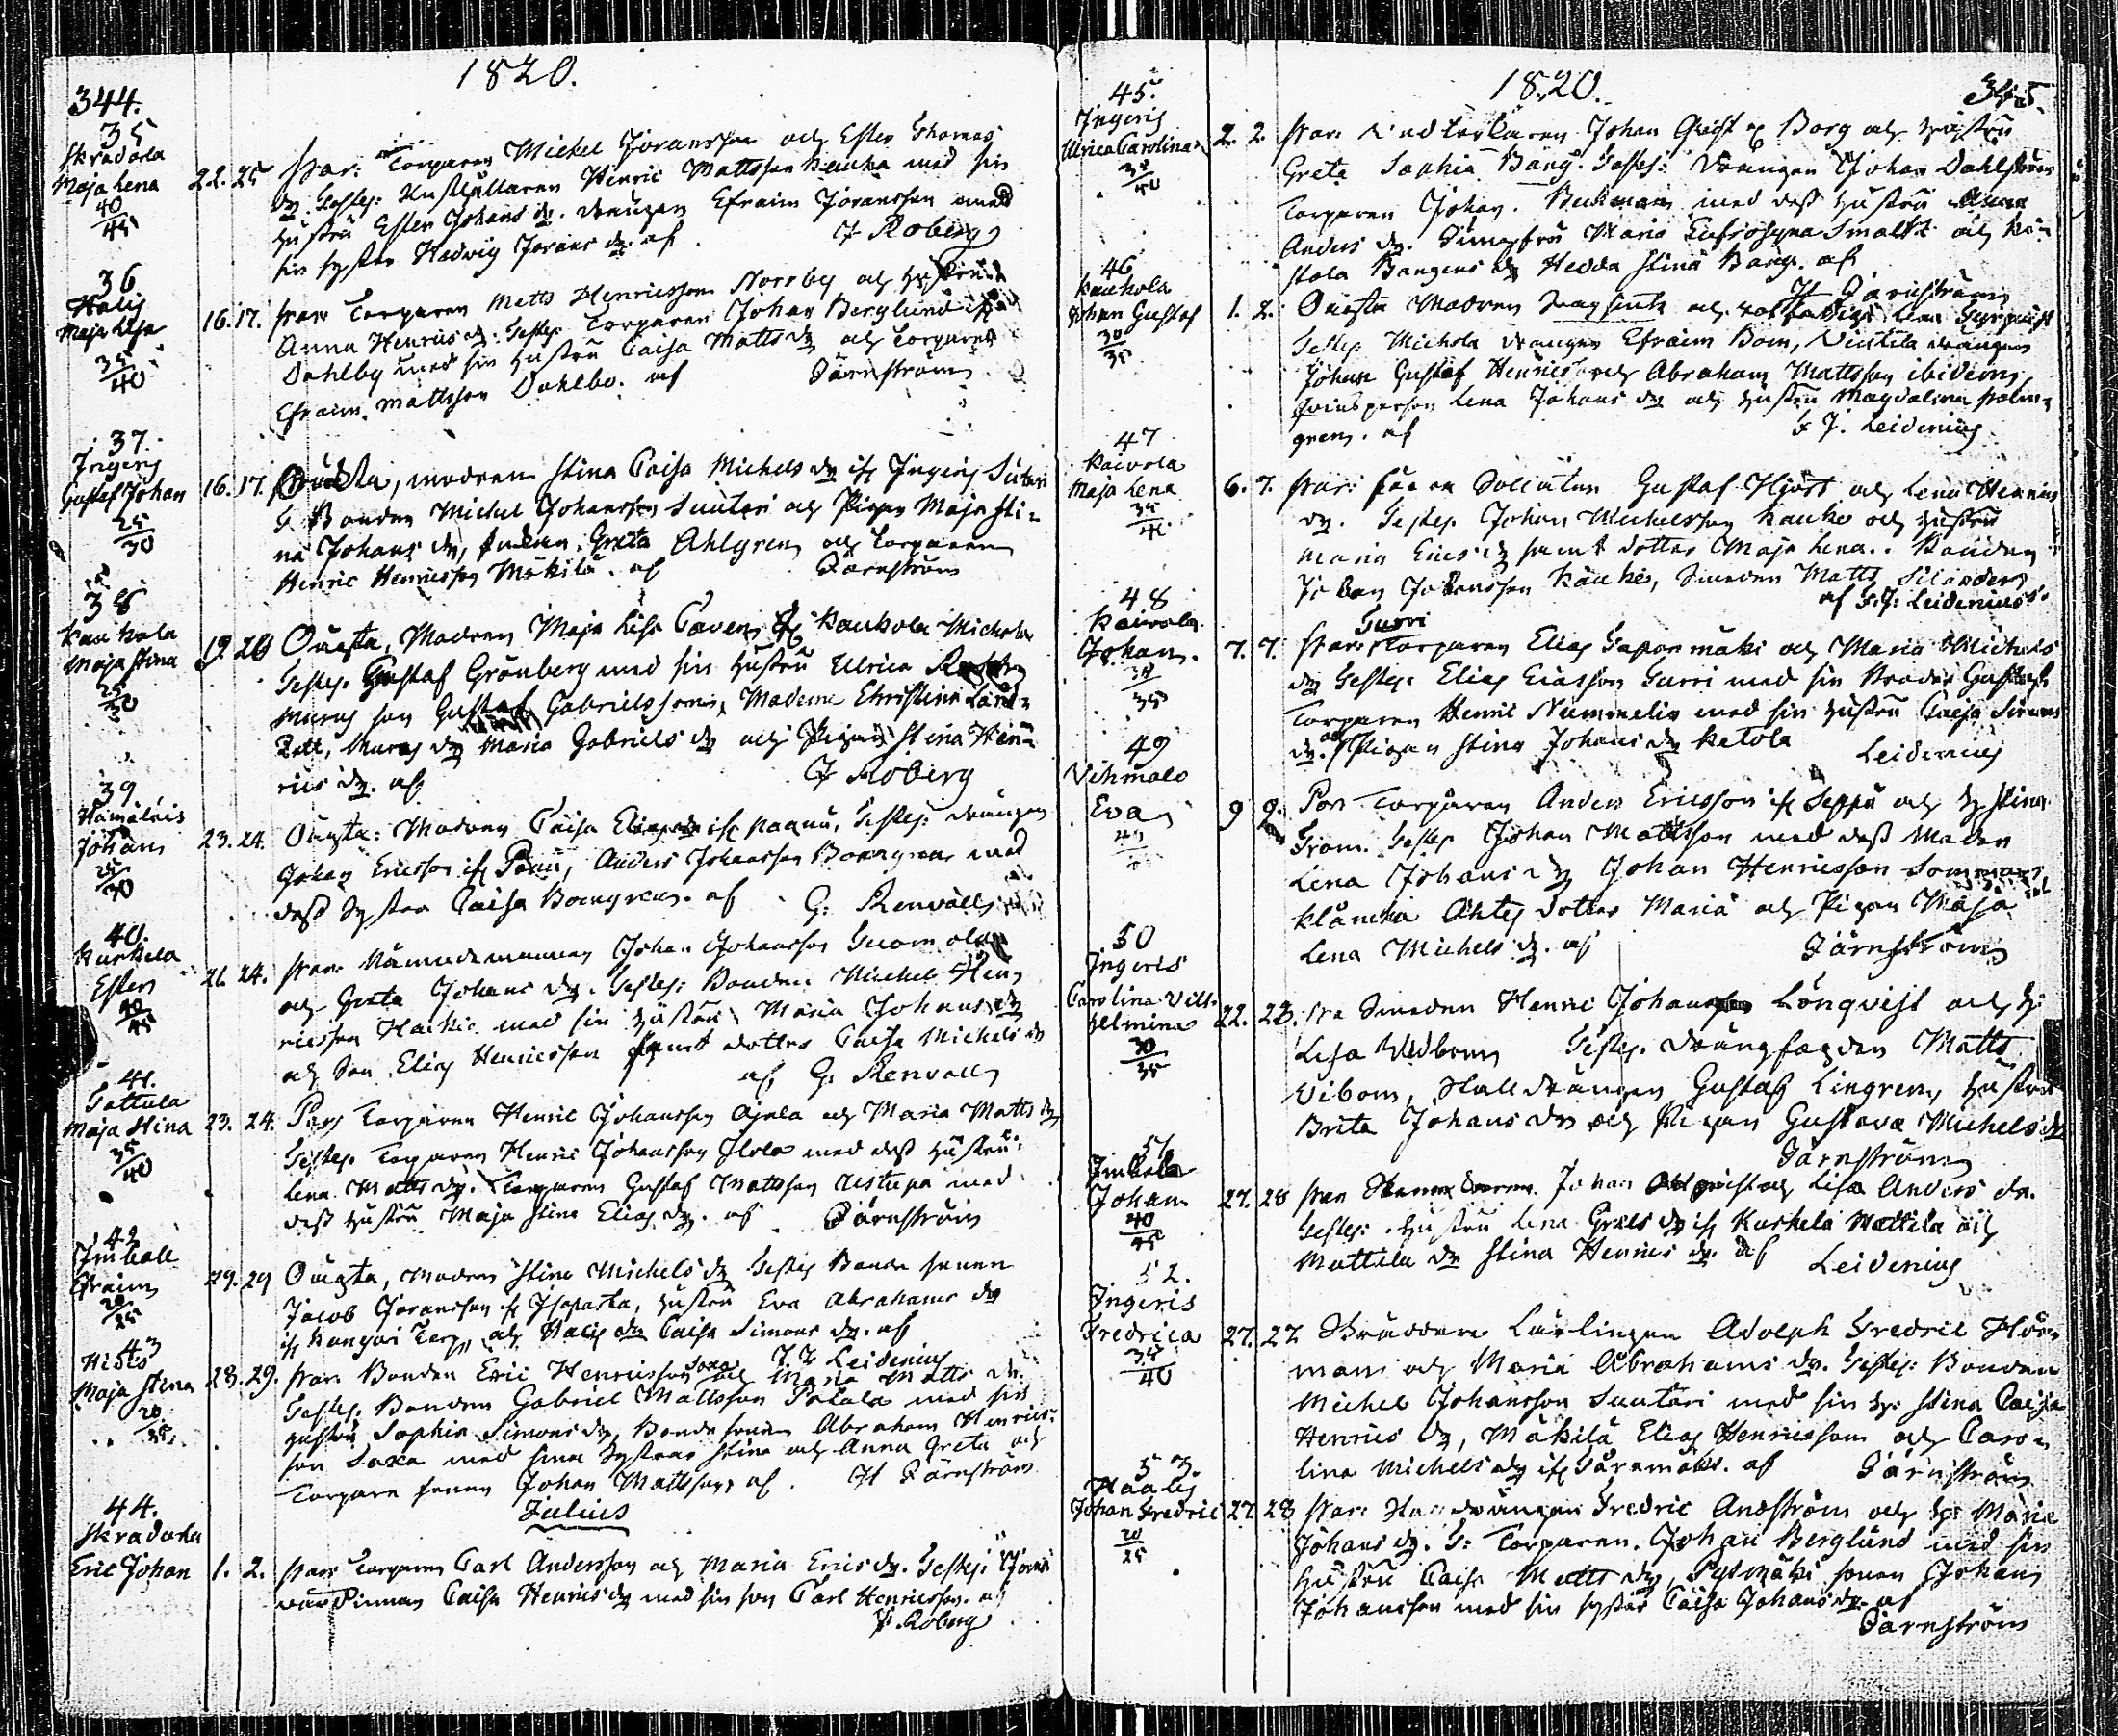 1820.
344.
35
Skradarla
Maja Lena
40
45
22. 25
Par: Torparen Michel Joransson och Ester Thomas
dr. Testes: Inhyses Henric Mattsson Kauka med sin
hustru Ester Johans dr. drängen Efraim Joransson med
sin syster Hedvig Jorans dr. af
J Roberg
36
Halis
Maja Lisa
35
40
16. 17.
Par: Torparen Matts Henricsson Norrby och hustru
Anna Henrics dr: Testes: Torparen Johan Berglund
Dahlby med sin hustru Caisa Matts dr och Torparen
Efraim Mattsson Dahlbo. af
Tärnström
37.
Ingeris
Gustaf Johan
25
30
16. 17.
Oäcta, modren Stina Caisa Michels dr ifr Ingeris Sutari
T. Bonden Michel Johansson Suutari och Pigan Maja Sti-
na Johans dr, Greta Ahlgren och Torparen
Henric Henricsson Mäkilä. af
Tärnström
38
Kaukola
Maja Stina
25
30
19. 20
Oägta, Modren Maja Lisa ifr Kaukola Michola
Testes. Gustaf Grönberg med sin hustru Ulrica
Murars son Gustaf Gabrielsson, Madame Christina Land-
zett, Murars dr Maria Gabriels dr och Pigan Stina Hen-
rics dr. af
J Roberg
39
Hämäläis
Johan
25
30
23. 24.
Oägta: Modren Caisa Elias dr ifr Paanu, Testes: drängen
Johan Ericsson ifr Panu, Anders Johansson Bomgren med
dess Syster Caisa Bomgren. af
G. Renvall
40.
Kurkela
Ester
40
45
21. 24.
Par: Nämndemannen Johan Johansson Suomola
och Greta Johans dr. Testes: Bonden Michel Hen-
ricsson Haikis med sin hustru Maria Johans dr
och Son Elias Henricsson samt dotter Caisa Michels dr
af G. Renvall
41.
Tattula
Maja Stina
35
40
23. 24.
Par: Torparen Henric Johansson Ajala och Maria Matts dr
Testes. Torparen Henric Johansson Ilola med dess hustru
Lena Matts dr. Torparen Gustaf Mattsson Aistupa med
dess hustru Maja Stina Elias dr. af
Tärnström
42
Imkall
Efraim
20
25
29. 29
Oägta, modren Stina Michels dr Testes Bonde sonen
Jacob Joransson ifr Isoparta, hustru Eva Abrahams dr
ifr Kangari Torp, och Halis dr Caisa Simons dr. af
F. J. Leidenius
43
Hirvis
Maja Stina
20
25
28. 29.
Par: Bonden Eric Henricsson Saxa och Maria Matts dr.
Testes. Bonden Gabriel Mattsson Patala med sin
hustru Sophia Simons dr, Bonde sonen Abraham Henrics-
son Saxa med sina systrar Stina och Anna Greta och
Torpare sonen Johan Mattsson af
H Tärnström
Julius
44.
Skradarla
Eric Johan
1. 2.
Par: Torparen Carl Andersson och Maria Erics dr. Testes: Jord
värdinnan Caisa Henrics dr med sin son Carl Henricsson. af
J. Roberg
1820.
345.
45.
Ingeris
Ulrica Carolina
35
40
2. 2.
Par: Johan Qvist ifr Borg och hustru
Greta Sophia Bång. Testes: Drängen Johan Dahlström
Torparen Johan Beckman med dess hustru Anna
Anders dr. Jungfru Maria Eufrosyna Smaltz och
stola Bängens dr Hedda Stina Bång. af
H Tärnström
46
Kaukola
Johan Gustaf
30
35
1. 2.
Oägta Modren Lena Syrqvist
Testes: Michola drängen Efraim Bom, Vestila drängen
Johan Gustaf Henricsson och Abraham Mattsson ibidem,
qvinsperson Lena Johans dr och hustru Magdalena Holm-
gren. af
F J. Leidenius
47
Koivola
Maja Lena
35
40.
6. 7.
Par: Soldaten Gustaf Hjort och Lena Henrics
dr. Testes. Johan Michelsson Kauko och hustru
Maria Erics dr samt dotter Maja Lena. Bonden
Johan Johansson Kaukis, Smeden Matts Silander
af F. J: Leidenius
48
Koivola
Johan.
30
35
7. 7.
Par: Torparen Surri Elias Saparmäki och Maria Michels
dr Testes: Elias Eliasson Surri med sin Broder Gustaf
Torparen Henric Nummelin med sin hustru Caisa Simons
dr. och Pigan Stina Johans dr Ketola
Leidenius
49
Vihmalo
Eva
9 9.
Par Torparen Anders Ericsson ifr Seppä och h Stina
From. Testes Johan Mattsson med dess Moder
Lena Johans dr Johan Henricsson Sommar
Klåncka Ahtis dotter Maria och Pigan Maja
Lena Michels dr. af
Tärnström
50
Ingeris
Carolina Vil-
helmina
30
35
22. 23.
Par Smeden Henric Johansson Lönqvist och h:
Lisa Vidbom Testes: drängfogden Matts
Vibom, Stalldrängen Gustaf Lingren, hustru
Brita Johans dr och Pigan Gustava Michels dr
Tärnström
51
Imkala
Johan
40
45
27. 28
Par Johan Ahlqvist och Lisa Anders dr.
Testes: hustru Lena Greels dr ifr Kurkela Mattila och
Mattila dr Stina Henrics dr. af
Leidenius
52.
Ingeris
Fredrica
35
40
27. 27
Skräddare Lärlingen Adolph Fredric Hör-
man och Maria Abrahams dr. Testes: Bonden
Michel Johansson Suutari med sin h: Stina Caisa
Henrics dr, Mäkilä Elias Henricsson och Caro-
lina Michels dr ifr Särnmäki. af
Tärnström
53.
Haalis
Johan Fredric
20
25
27. 28
Par: drängen Fredric Andström och h: Maria
Johans dr. T: Torparen Johan Berglund med sin
hustru Caisa Matts dr, Pytmäki sonen Johan
Johansson med sin syster Caisa Johans dr. af
Tärnström